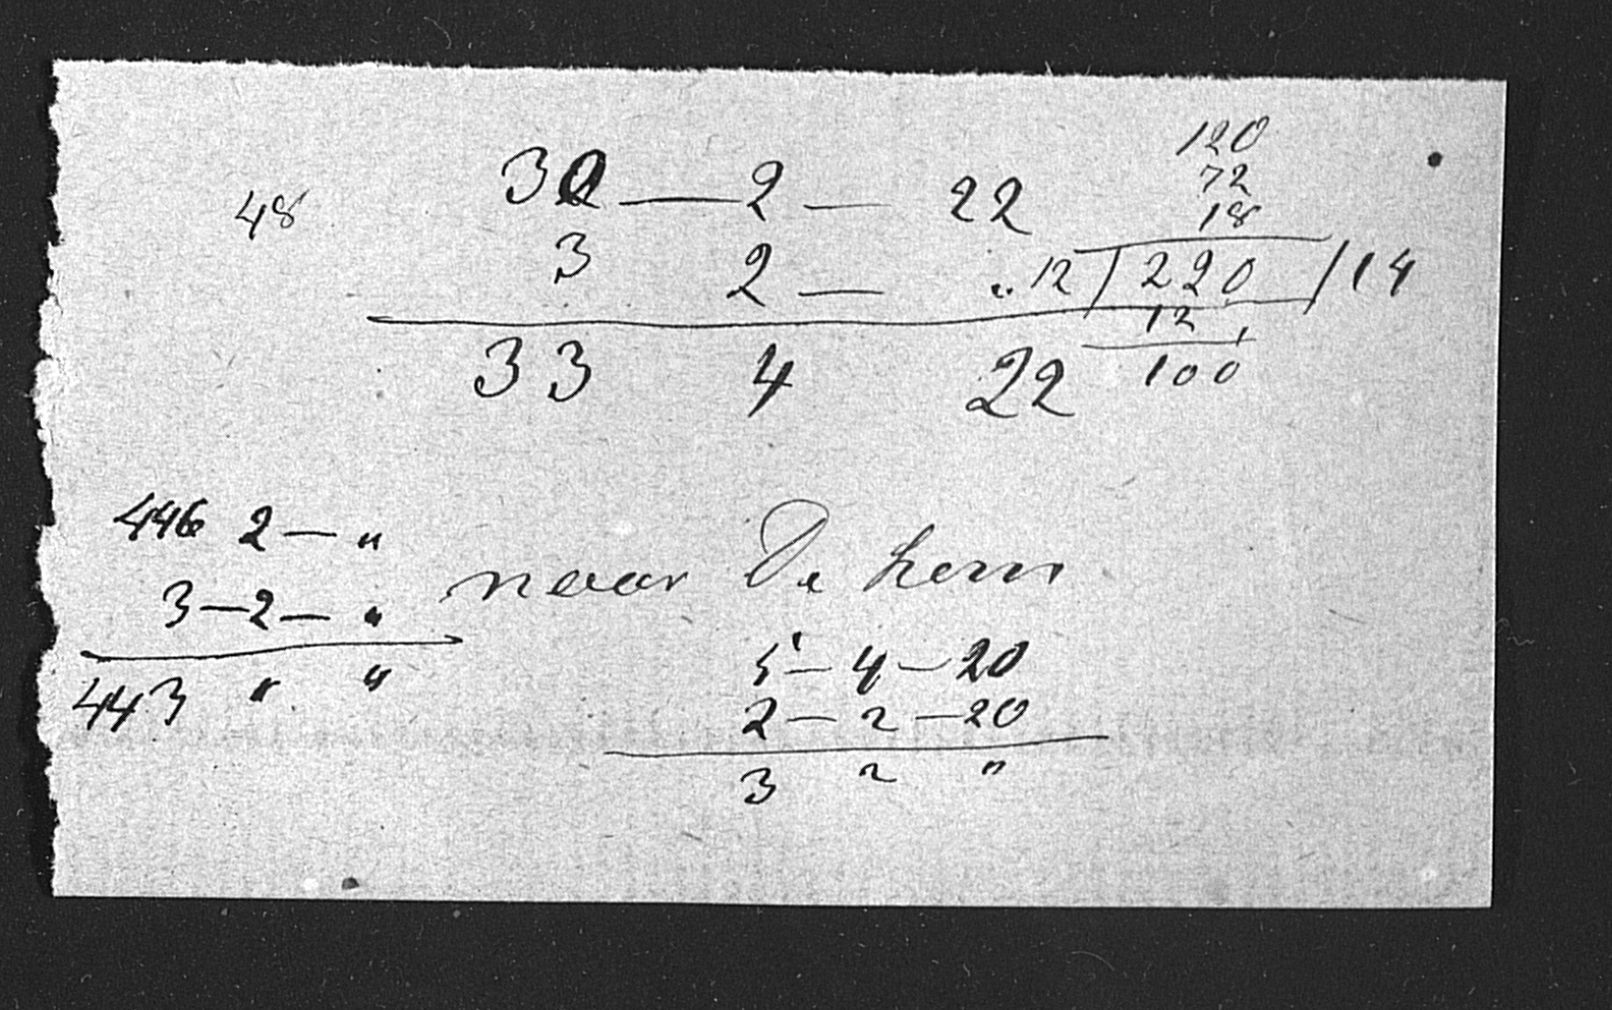 120
72
48 30 — 2 — 22 18
3 2 — „ 12 / 220 / 14
12
33 4 22 100
446 2 — „
naar De hem
3 — 2 — „
5 — 4 — 20
443 „ „
2 — 2 — 20
3 2 „